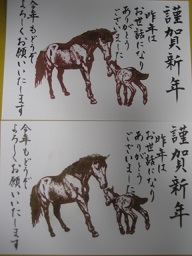 謹賀新年
昨年は
お世話になり
ありがとう
ございました
今年もどうぞ
よろしくお願いいたします
謹賀新年
昨年は
お世話になり
ありがとう
ございました
今年もどうぞ
よろしくお願いいたします